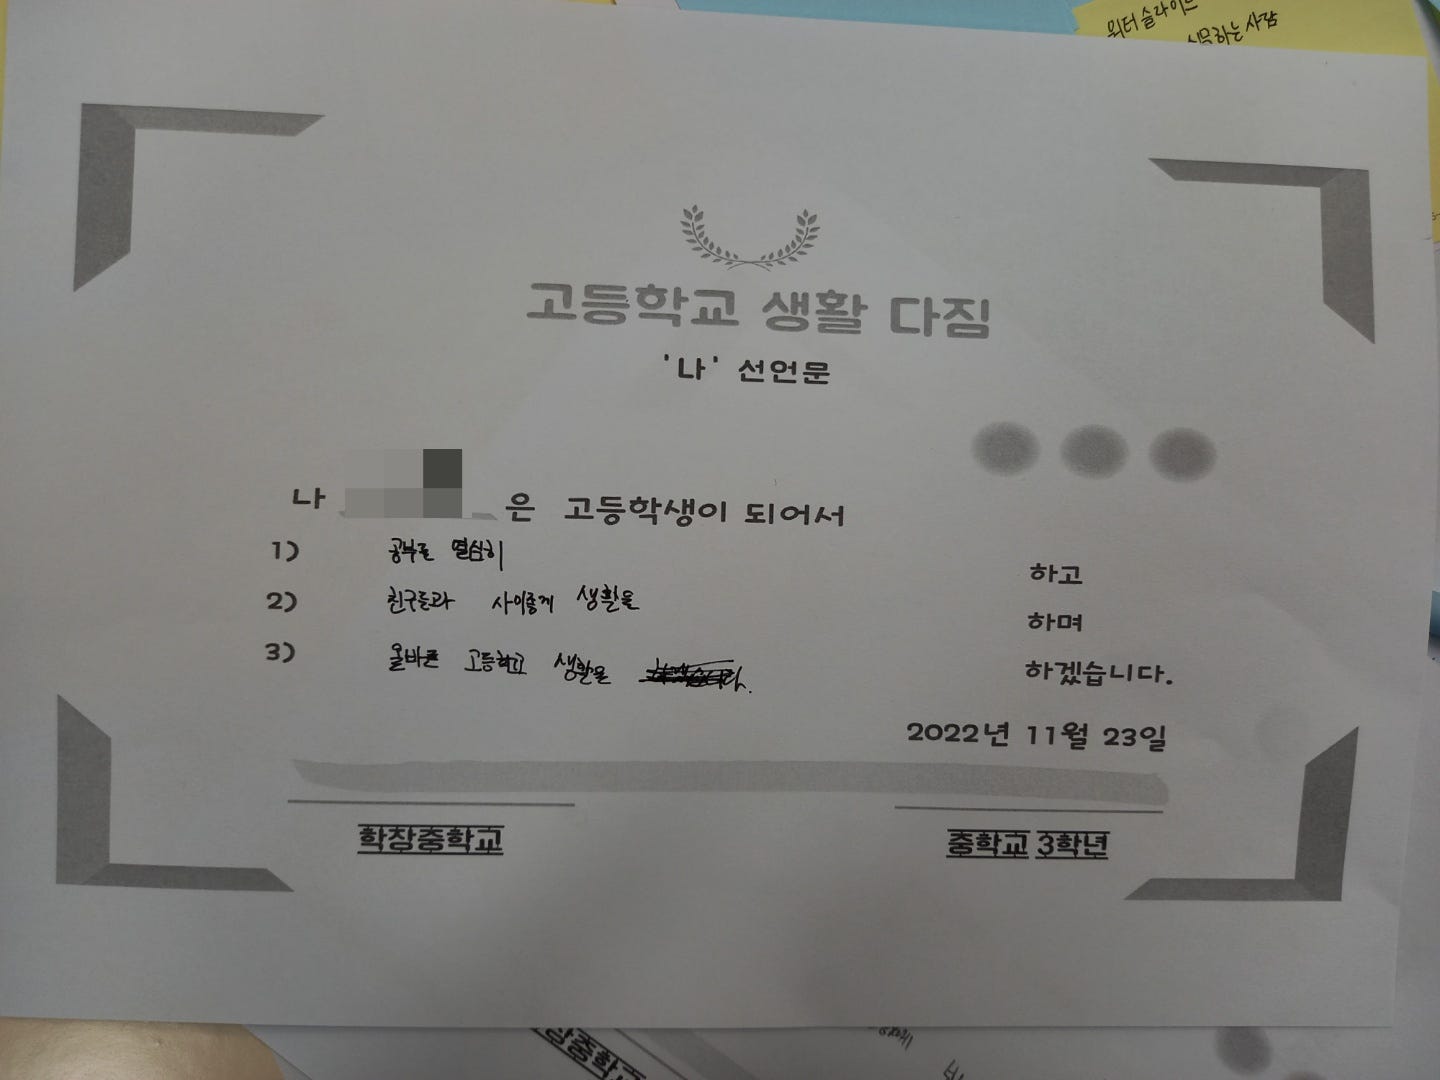 워터 슬라이드
고등학교 생활 다짐
'나' 선언문
나 은 고등학생이 되어서
1) 공부를 열심히 하고
2) 친구들과 사이좋게 생활을 하며
3) 올바른 고등학교 생활을 하겠습니다.
2022년 11월 23일
학창중학교 중학교 3학년
창중학교